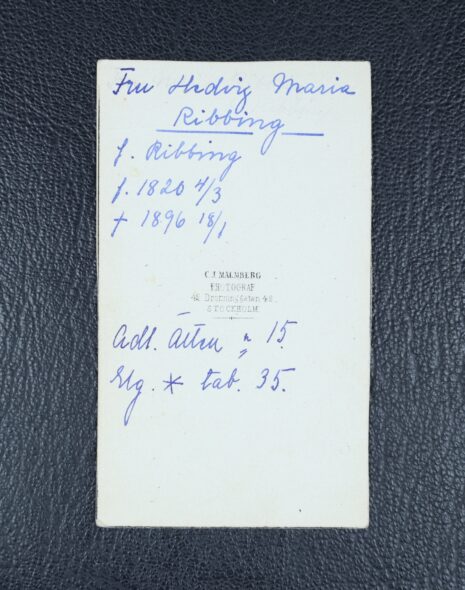 Fru Hedvig Maria
Ribbing
f. Ribbing
f. 1820 4/3
† 1896 18/1
C J MALMBERG
FOTOGRAF
42 Drottninggatan 42.
STOCKHOLM
Adl. ätten n 15.
Elg. * tab. 35.